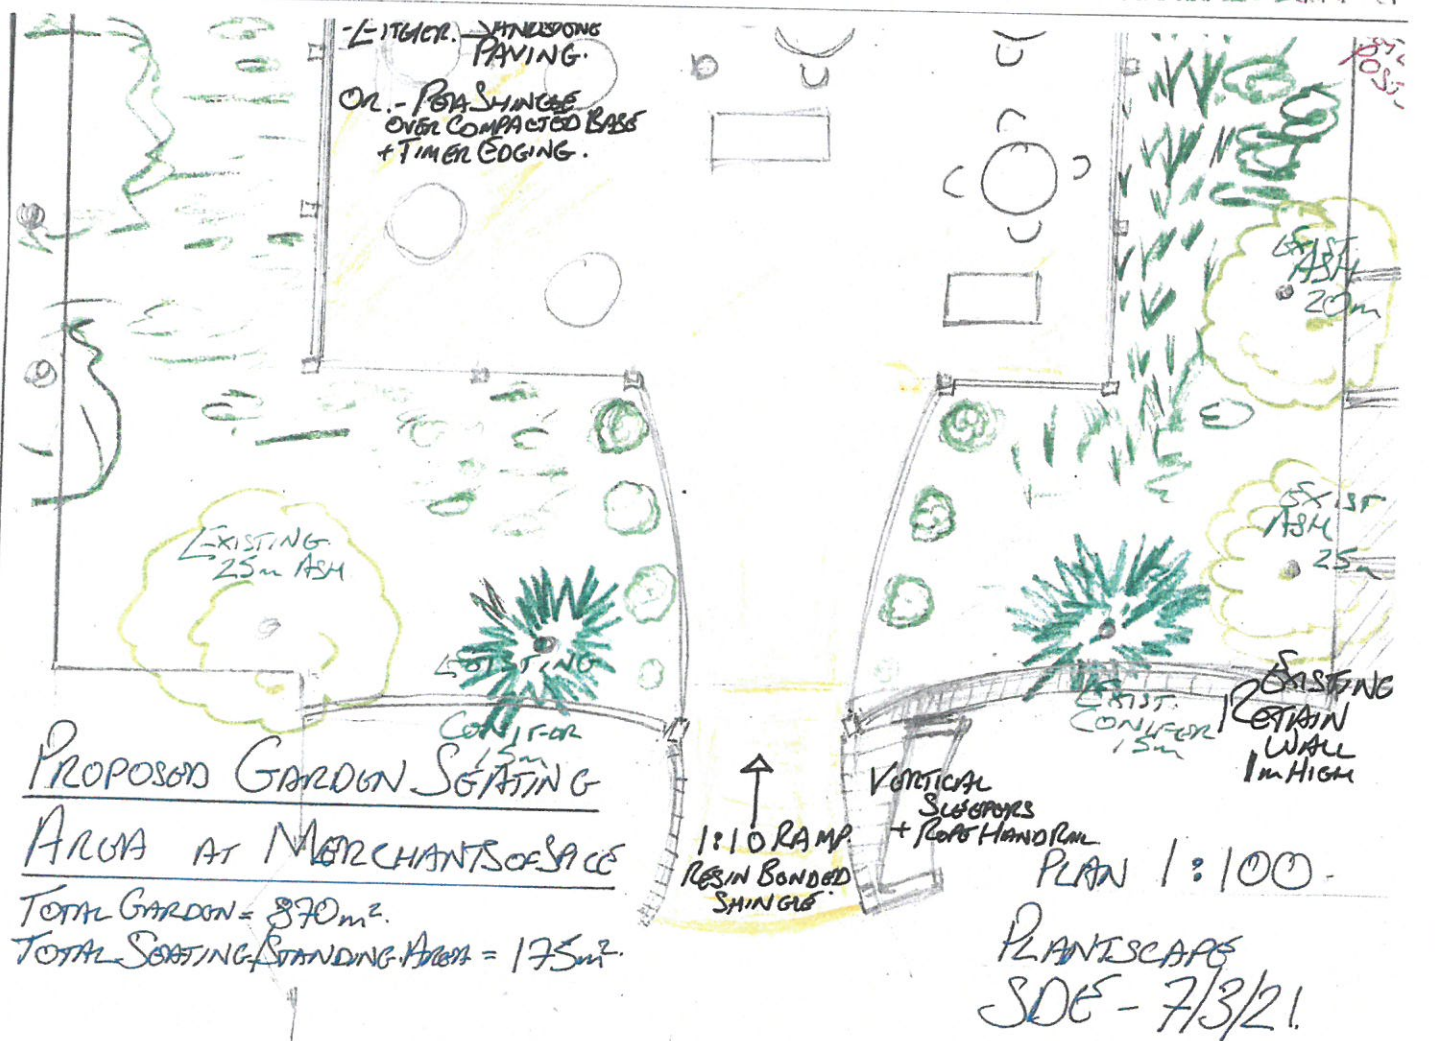 - EITHER. → SANDSTONE
PAVING.
OR. - PEA SHINGLE
OVER COMPACTED BASE
+ TIMER EDGING.
POST
EXIST.
ASH
20m
EXISTING
25m ASH
EXIST
ASH
25m
EXISTING
CONIFER
15m
EXIST.
CONIFER
15m
EXISTING
RETAIN
WALL
1m HIGH
VERTICAL
SLEEPERS
+ ROPE HANDRAIL
1:10 RAMP.
RESIN BONDED
SHINGLE.
PROPOSED GARDEN SEATING
AREA AT MERCHANTS OF SPICE
TOTAL GARDEN = 870m².
TOTAL SEATING/STANDING AREA = 175m².
PLAN 1:100.
PLANTSCAPE
SDE - 7/3/21.